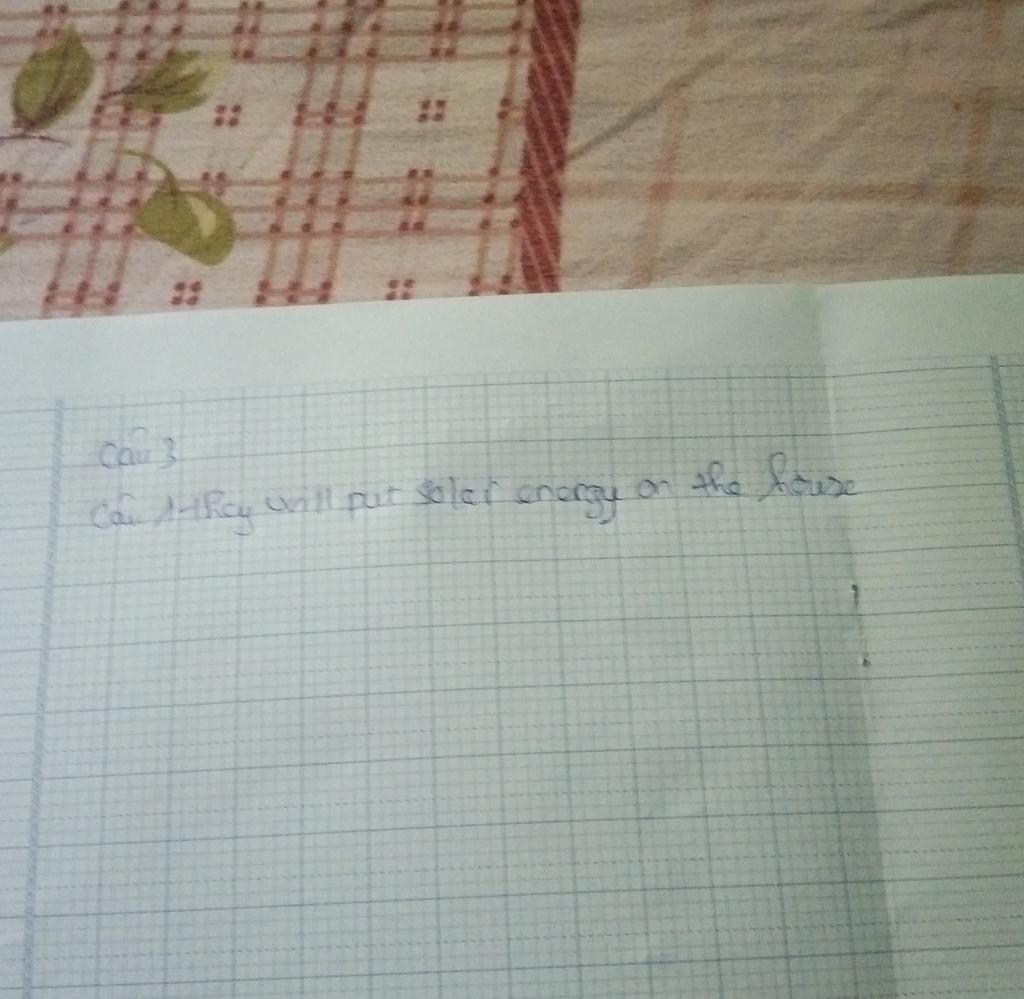 Câu 3
Câu 1 they will put solar energy on the house